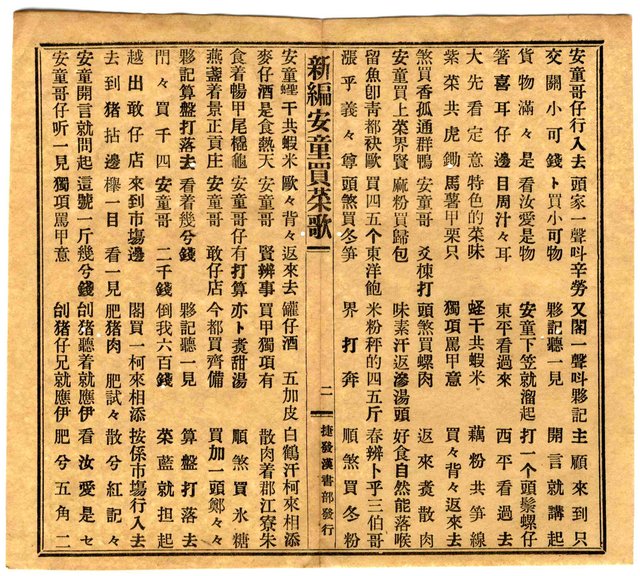 安童哥仔行入去 頭家一聲叫辛勞 又閣一聲叫夥記 主顧來到只
交關小可錢 卜買小可物 夥記聽一見 開言就講起
貨物滿々是 看汝愛是物 安童下笠就溜起 打一个頭鬃螺仔
箸喜耳仔邊 目周汁々耳 東平看過來 西平看過去
大先看定意 特色的菜味 蛏干共蝦米 藕粉共笋線
紫菜共虎鋤 馬薯甲栗只 獨項罵甲意 買々背々返來去
煞買香孤通群鴨 安童哥 爻棟打 頭煞買螺肉 返來煑散肉
安童買上菜界賢 麻粉買歸包 味素汗返滲湯頭 好食自然能落喉
留魚卽青都秧歐 買四五个東洋飽 米粉秤的四五斤 春辨卜乎三伯哥
漲乎義々尊 頭煞買冬笋 界打奔 順煞買冬粉
新編安童買菜歌 二 捷發漢書部發行
安童蟶干共蝦米 歐々背々返來去 罐仔酒 五加皮 白鶴汗柯來相添
麥仔酒是食熱天 安童哥 賢辨事 買甲獨項有 散肉着郡江寮朱
食着暢甲尾檨龜 安童哥仔有打算 亦卜煑甜湯 順煞買氷糖
燕盞着景正貢庄 安童哥 敢仔店 今都買齊備 買加一頭鄭々々
夥記算盤打落去 看着幾兮錢 夥記聽一見 算盤打落去
門々買千四 安童哥 二千錢 倒我六百錢 菜藍就担起
越出敢仔店 來到市塲邊 閣買一柯來相添 按係市塲行入去
去到猪拈邊 櫸一目 看一見 肥猪肉 肥試々 散兮紅記々
安童開言就問起 這號一斤幾兮錢 刣猪聽着就應伊 看汝愛是セ
安童哥仔听一見 獨項罵甲意 刣猪仔兄就應伊 肥兮五角二